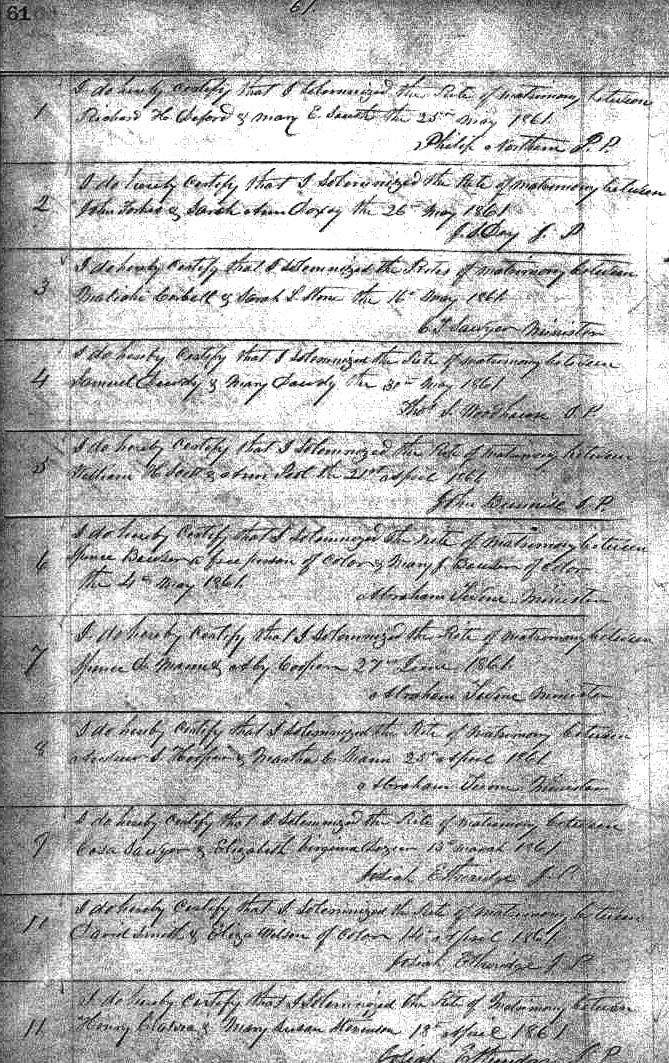 61
61
1 I do hereby Certify that I Solemnized the Rite of matrimony between
Richard H. & Mary E. the 23rd May 1861
Philip Northern J. P.
2 I do hereby Certify that I Solemnized the Rite of Matrimony between
John Forbes & Sarah Ann Doxey the 26th May 1861
J. P.
3 I do hereby Certify that I Solemnized the Rites of Matrimony between
Malichi Corbell & Sarah Stone the 16th May 1861
Sawyer Minister
4 I do hereby Certify that I Solemnized the Rite of Matrimony between
Samuel & Mary the 30th May 1861
Thos. Woodhouse J. P.
5 I do hereby Certify that I Solemnized the Rite of Matrimony between
William H. & Ann the 21st April 1861
John J. P.
6 I do hereby Certify that I Solemnized the Rite of Matrimony between
Spence Bowser a free person of Color & Mary J. Bowser of Color
the 4th May 1861
Abraham Minister
7 I do hereby Certify that I Solemnized the Rite of Matrimony between
Spence & Aby 27th June 1861
Abraham Minister
8 I do hereby Certify that I Solemnized the Rite of Matrimony between
Andrew & Martha 25th April 1861
Abraham Minister
9 I do hereby Certify that I Solemnized the Rite of Matrimony between
Sawyer & Elizabeth Virginia March 1861
Josiah Etheridge J. P.
11 I do hereby Certify that I Solemnized the Rite of Matrimony between
David Smith & Eliza Wilson of Color April 1861
Josiah Etheridge J. P.
11 I do hereby Certify that I Solemnized the Rite of Matrimony between
Henry & Mary Susan April 1861
Josiah Etheridge J. P.